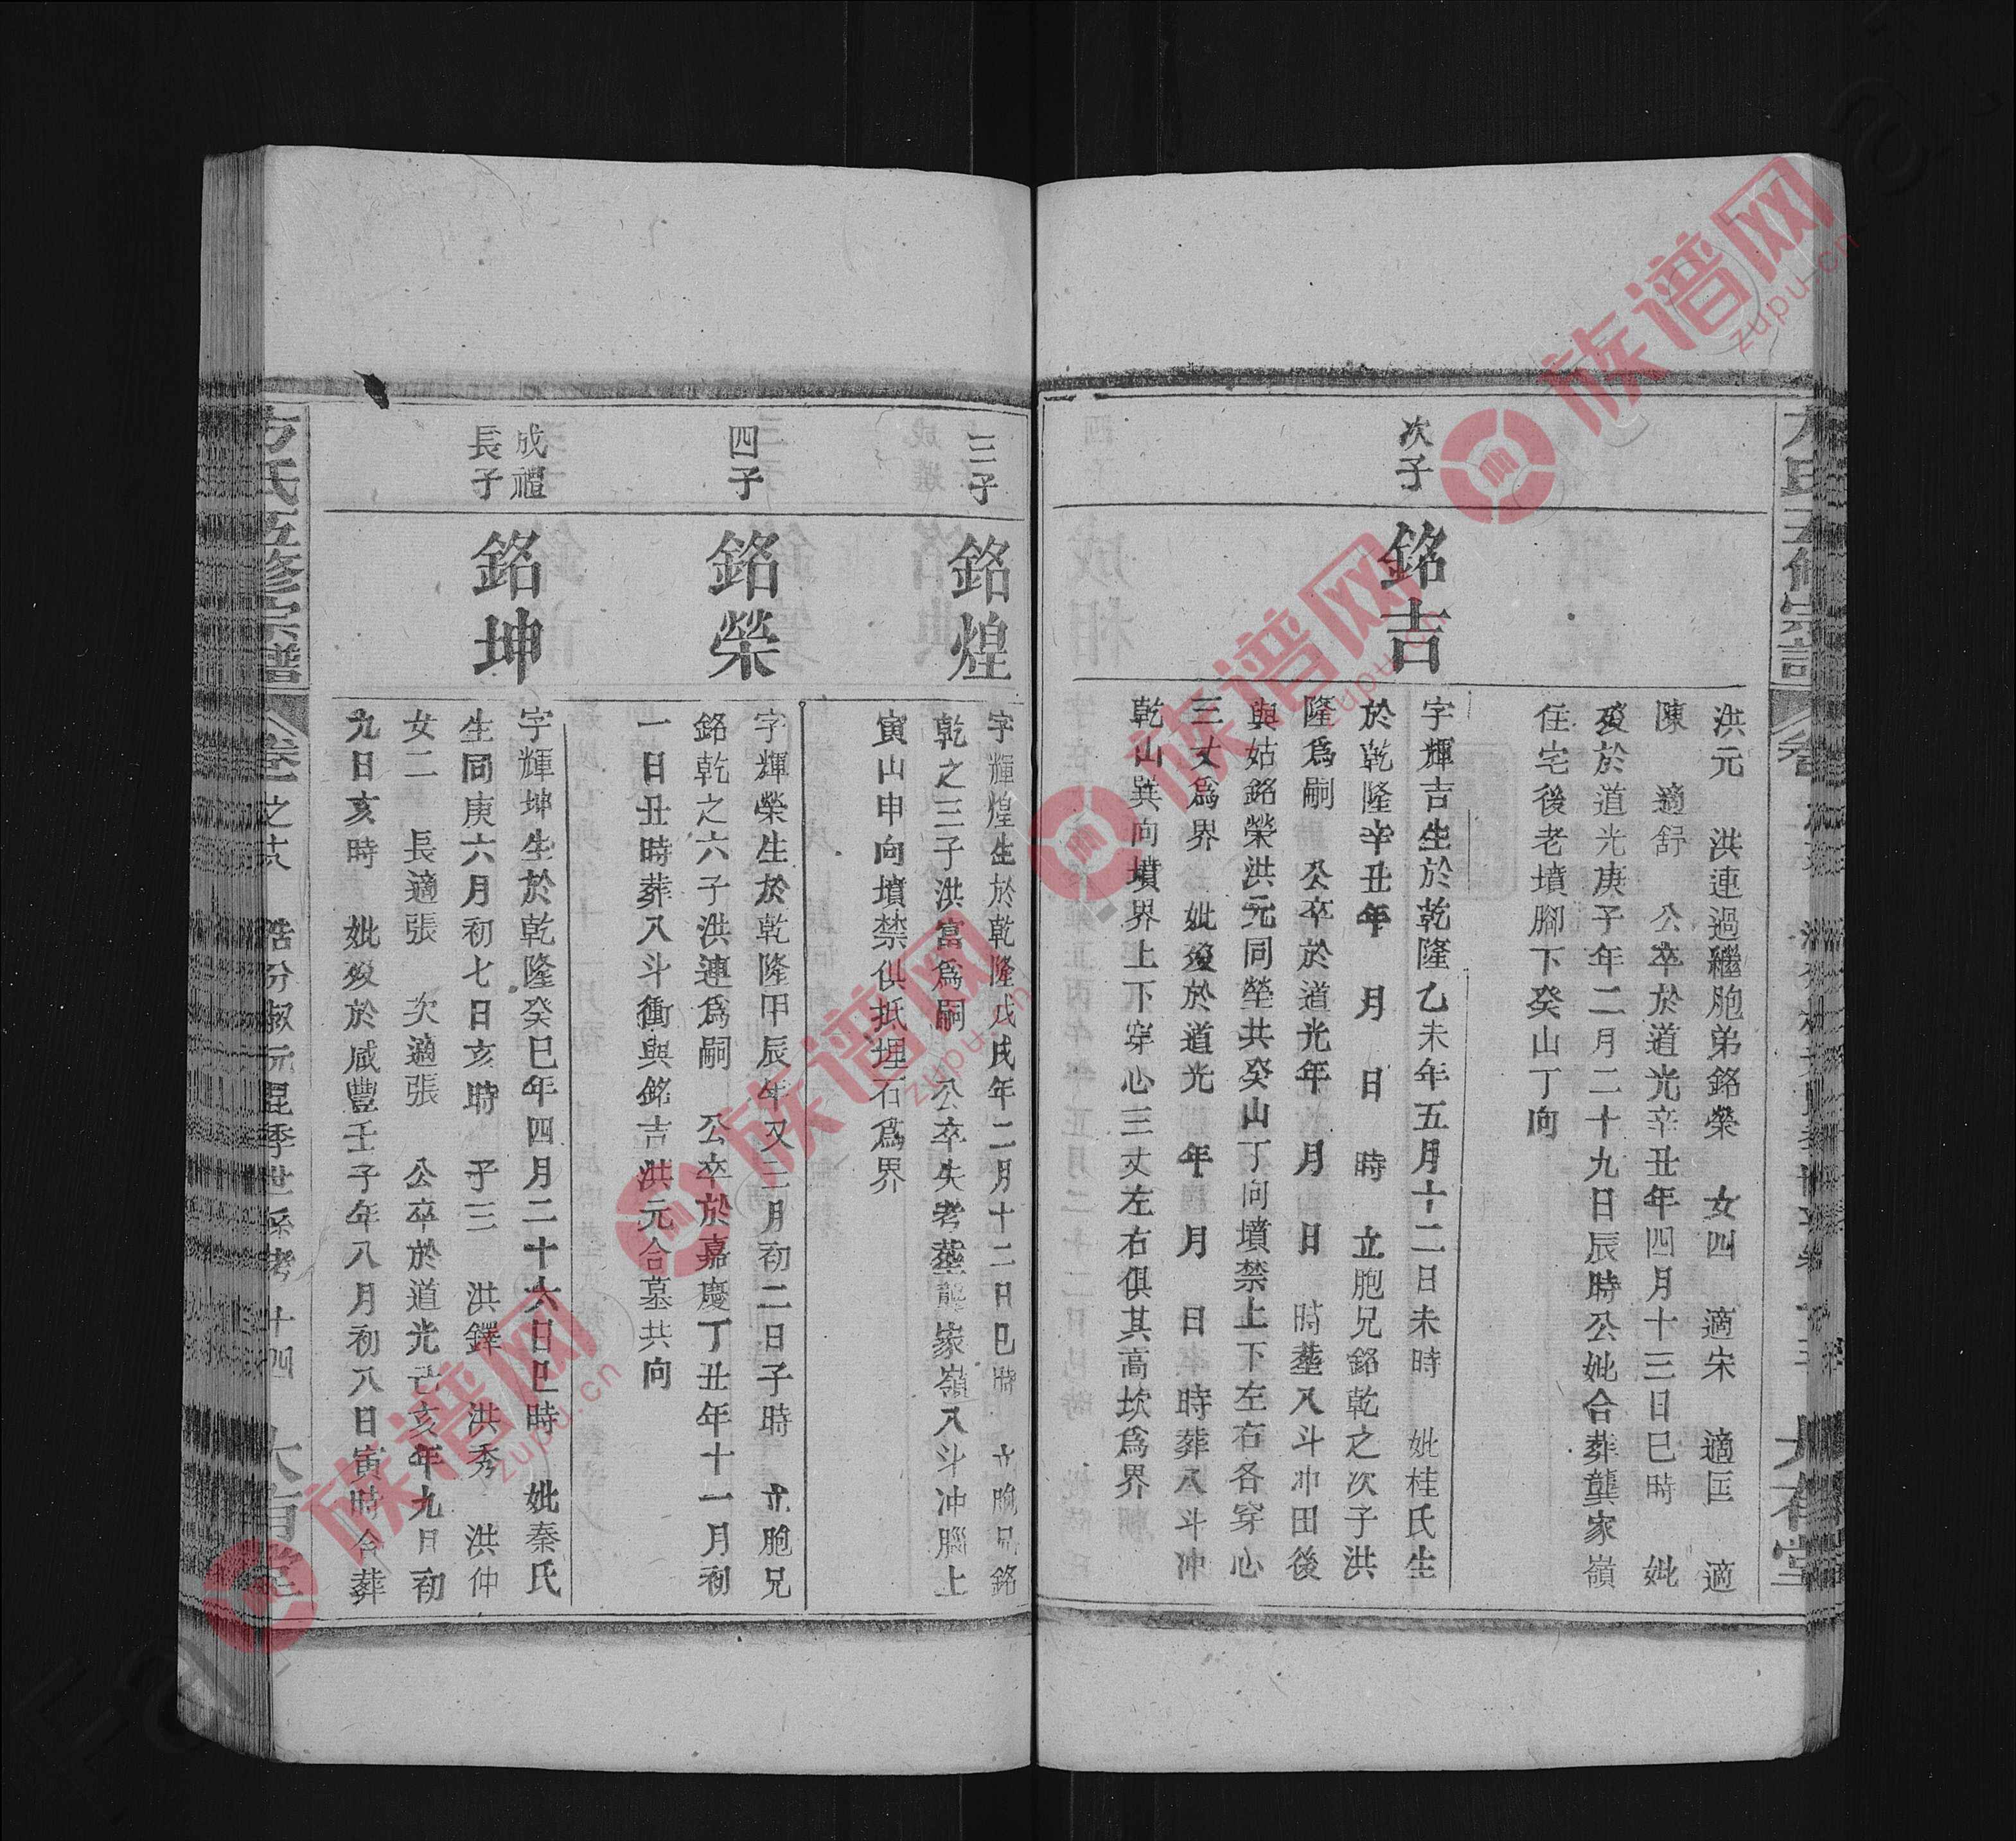 洪元　洪連過繼胞弟銘榮　女四　適宋　適匡　適
陳　適舒　公卒於道光辛丑年四月十三日巳時　妣
歿於道光庚子年二月二十九日辰時公妣合葬龔家嶺
住宅後老墳腳下癸山丁向
次子
銘吉
字輝吉生於乾隆乙未年五月十二日未時　妣桂氏生
於乾隆辛丑年　月　日　時　立胞兄銘乾之次子洪
隆爲嗣　公卒於道光年　月　日　時塟八斗冲田後
與姑銘榮洪元同塋共癸山丁向墳禁上下左右各穿心
三丈爲界　妣歿於道光　年　月　日　時葬八斗冲
乾山巽向墳界上下穿心三丈左右俱其高坎爲界
三子
銘煌
字輝煌生於乾隆戊戌年二月十二日巳時　立胞兄銘
乾之三子洪富爲嗣　公卒失考塟龔家嶺八斗冲腦上
寅山申向墳禁俱抵埋石爲界
四子
銘榮
字輝榮生於乾隆甲辰年又三月初二日子時　立胞兄
銘乾之六子洪連爲嗣　公卒於嘉慶丁丑年十一月初
一日丑時葬八斗衝與銘吉洪元合墓共向
成禮
長子
銘坤
字輝坤生於乾隆癸巳年四月二十六日巳時　妣秦氏
生同庚六月初七日亥時　子三　洪鐸　洪秀　洪仲
女二　長適張　次適張　公卒於道光亡亥年九月初
九日亥時　妣歿於咸豐壬子年八月初八日寅時合葬
方氏五修宗譜
卷一之
世系考　十四
族谱网
zupu.cn
族谱网
zupu.cn
族谱网
zupu.cn
族谱网
zupu.cn